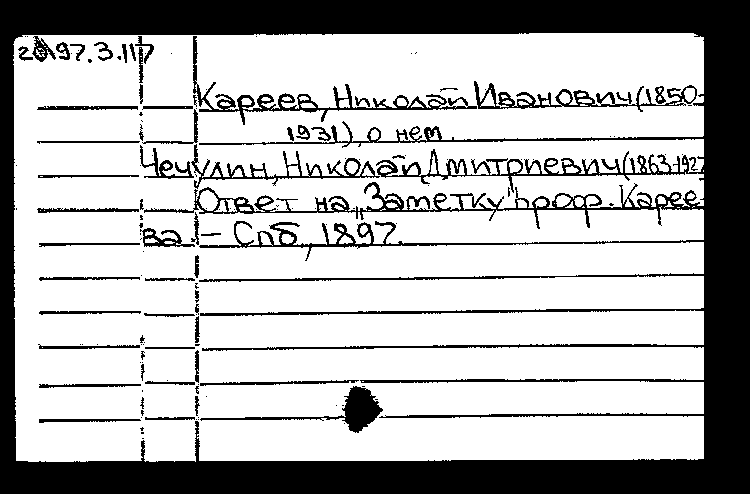 97.3.117
Кареев, Николай Иванович (1850-
1931), о нем.
Чечулин, Николай Дмитриевич (1863-1927
Ответ на „Заметку" проф. Карее-
ва. – Спб, 1897.